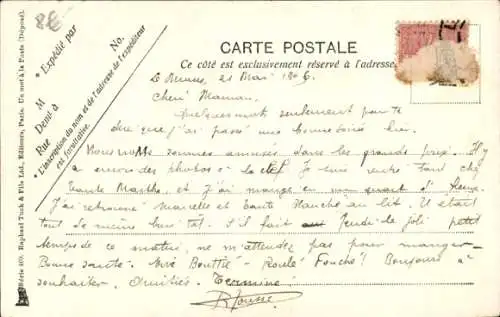 88
CARTE POSTALE
Ce côté est exclusivement réservé à l'adresse.
* Expédié par
M No.
Demt à
Rue
* L'inscription du nom et de l'adresse de l'expéditeur
est facultative.
Série 469. Raphael Tuck & Fils Ltd., Editeurs, Paris. Un mot à la Poste (Déposé).
Le Mans, 21 Mai
Cheri Maman,
Quelques mots seulement pour te
dire que j'ai passé une bonne soirée hier.
Nous nous sommes amusés dans les grands prix. Il y
a encore des photos à la clef. Je suis rentré tard chez
tante Marthe et j'ai mangé en un quart d'heure.
J'ai retrouvé Marcelle et tante Blanche au lit. Il était
tout de même bien tard. S'il fait Jeudi de joli petit
temps de ce matin ne m'attendez pas pour manger.
Bonne santé. Vive Bouttié - Roulé Fouché! Bonjour à
souhaiter. Amitiés.